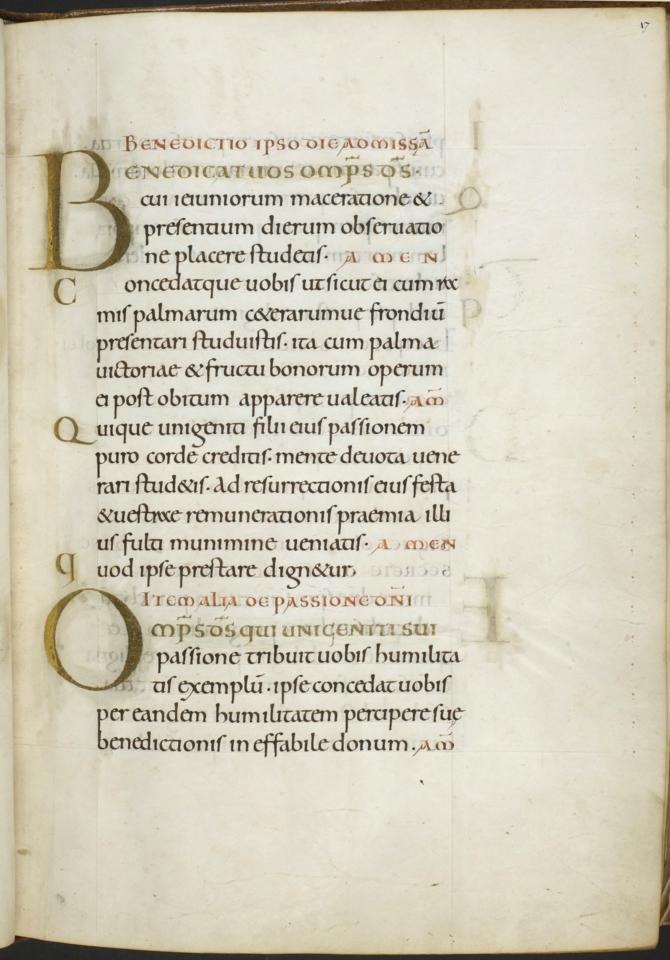 17
BENEDICTIO IPSO DIE AD MISSĀ
BENEDICAT UOS OMP̄S D̄S·
cui ieiuniorum maceratione &
presentium dierum obseruatio
ne placere studetis· AMEN
Concedatque uobis ut sicut ei cum ra
mis palmarum c&erarumue frondiū
presentari studuistis· ita cum palma
uictoriae & fructu bonorum operum
ei post obitum apparere ualeatis· AM̄
Quique unigeniti filii eius passionem
puro corde creditis· mente deuota uene
rari stud&is· Ad resurrectionis eius festa
& uestrae remunerationis praemia illi
us fulti munimine ueniatis· AMEN
quod ipse prestare dign&ur
ITEM ALIA DE PASSIONE DN̄I
OMP̄S D̄S QUI UNIGENITI SUI
passione tribuit uobis humilita
tis exemplū· ipse concedat uobis
per eandem humilitatem percipere suę
benedictionis ineffabile donum· AM̄